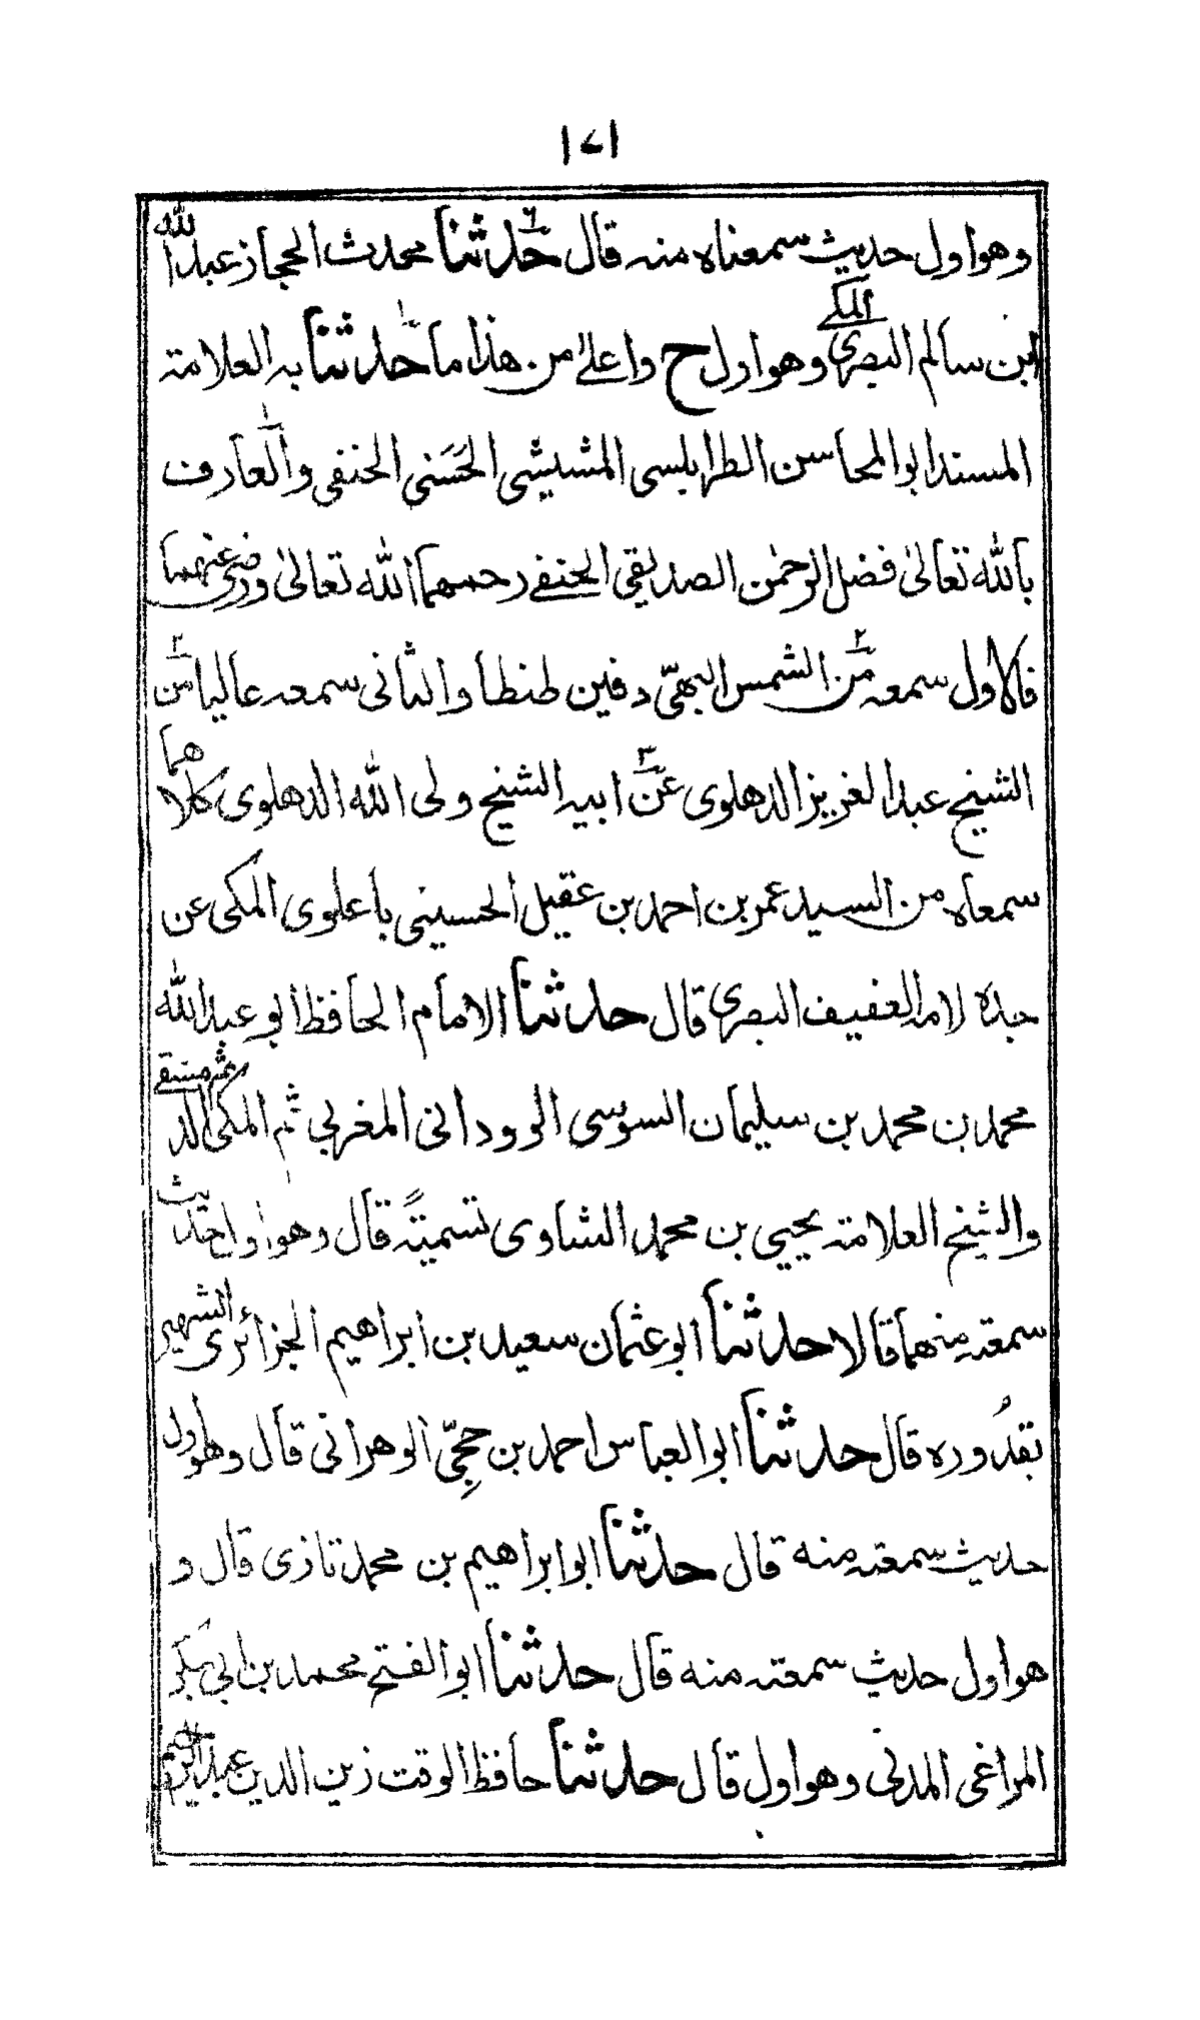 ١٧١
وهو اول حديث سمعناه منه قال حدثنا محدث الحجاز عبد الله
ابن سالم البصرى المكے وهو اول ح واعلےٰ من هذا ما حدثنا به العلامة
المسند ابو المحاسن الطرابلسى المشيشى الحَسَنى الحنفى والعارف
بالله تعالىٰ فضل الرحمٰن الصديقى الحنفے رحمهما الله تعالىٰ ورضى عنهما
فالاول سمعه من الشمس البهىّ دفين طنطا والثانى سمعه عاليا من
الشيخ عبد العزيز الدهلوى عن ابيه الشيخ ولى الله الدهلوى كلاهما
سمعاه من السيد عمر بن احمد بن عقيل الحسينى باعلوى المكى عن
جده لامه العفيف البصرى قال حدثنا الامام الحافظ ابو عبد الله
محمد بن محمد بن سليمان السوسى الوودانى المغربى ثم المكى ثم الدمشقے
والشيخ العلامة يحيى بن محمد الشاوى تسميتهً قال وهو اول حديث
سمعته منهما قالا حدثنا ابو عثمان سعيد بن ابراهيم الجزائرى الشهير
بقدُوره قال حدثنا ابو العباس احمد بن حجىّ الوهرانى قال وهو اول
حديث سمعته منه قال حدثنا ابو ابراهيم بن محمد تازى قال و
هو اول حديث سمعته منه قال حدثنا ابو الفتح محمد بن ابى بكر
المراغى المدنى وهو اول قال حدثنا حافظ الوقت زين الدين عبد الرحيم